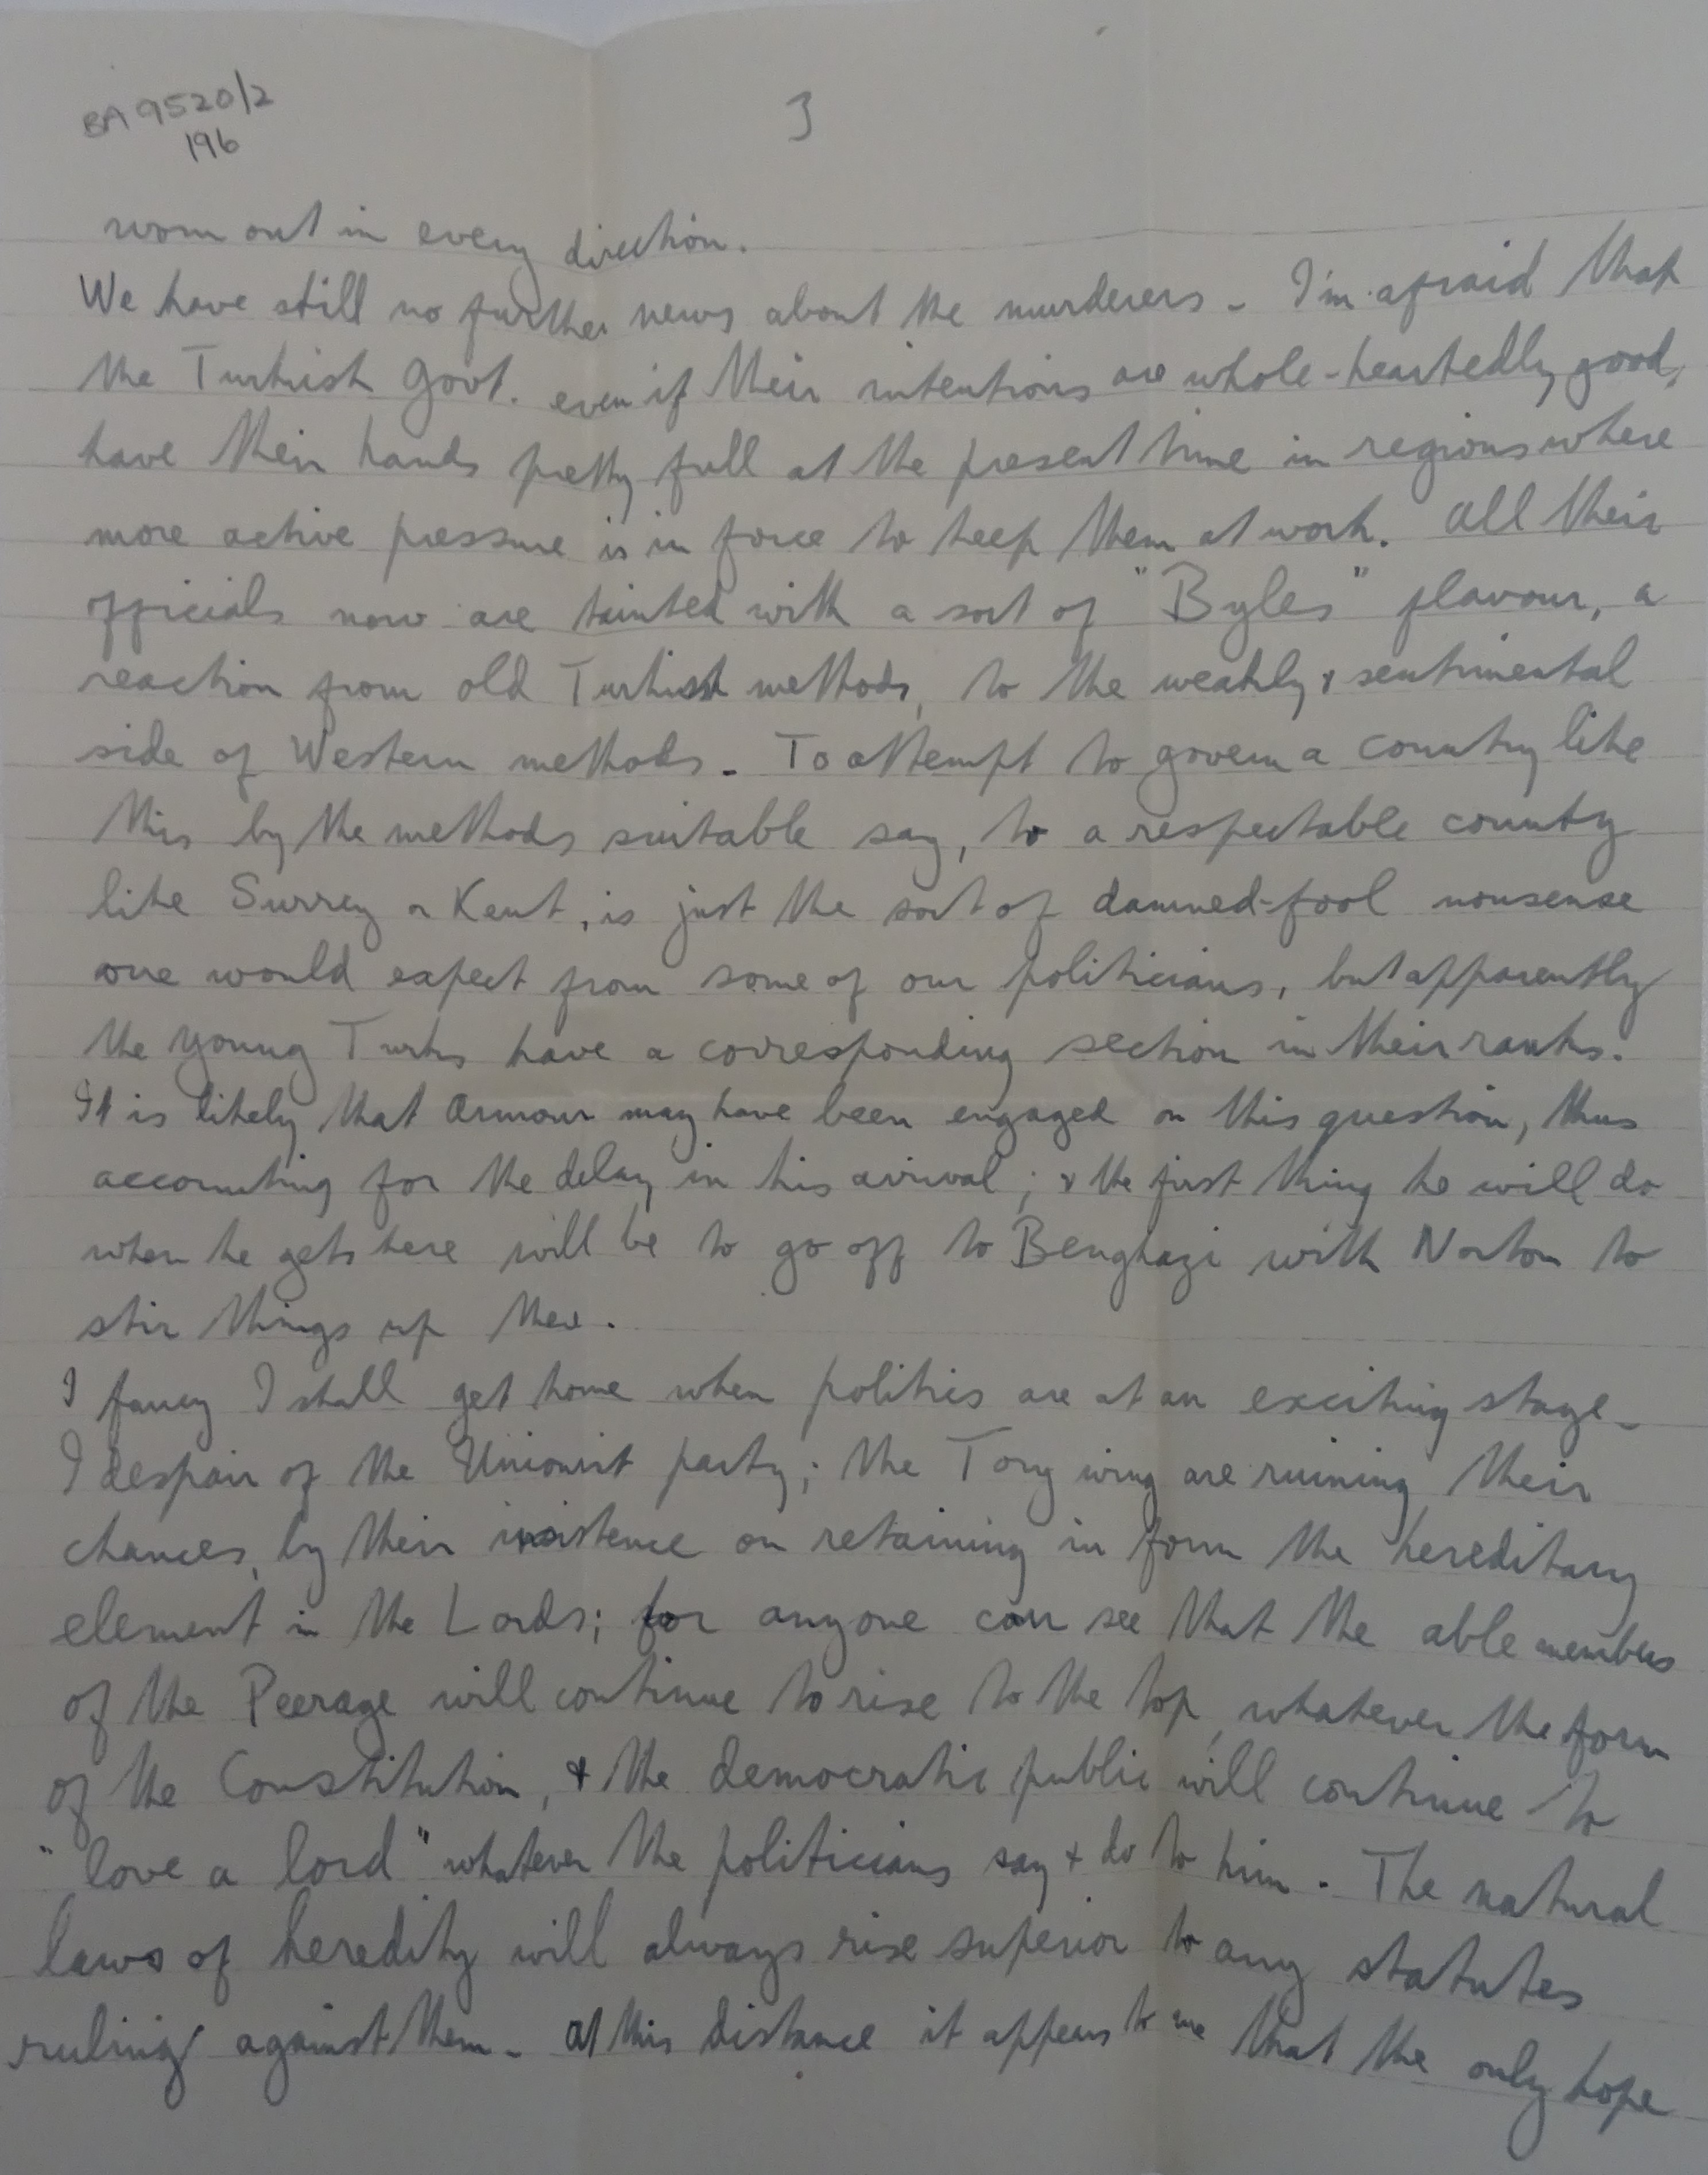 BA 9520/2
196
3
worn out in every direction.
We have still no further news about the murderers - I'm afraid that
the Turkish Govt. even if their intentions are whole-heartedly good,
have their hands pretty full at the present time in regions where
more active pressure is in force to keep them at work. All their
officials now are tainted with a sort of "Byles" flavour, a
reaction from old Turkish methods, to the weakly & sentimental
side of Western methods - To attempt to govern a country like
this by the methods suitable say, to a respectable county
like Surrey or Kent, is just the sort of damned-fool nonsense
one would expect from some of our politicians, but apparently
the young Turks have a corresponding section in their ranks.
It is likely that Armour may have been engaged on this question, thus
accounting for the delay in his arrival; & the first thing he will do
when he gets here will be to go off to Benghazi with Norton to
stir things up there.
I fancy I shall get home when politics are at an exciting stage -
I despair of the Unionist party; the Tory wing are ruining their
chances, by their insistence on retaining in form the hereditary
element in the Lords; for anyone can see that the able members
of the Peerage will continue to rise to the top, whatever the form
of the Constitution, & the democratic public will continue to
"love a lord" whatever the politicians say & do to him. The natural
laws of heredity will always rise superior to any statutes
ruling against them - At this distance it appears to me that the only hope